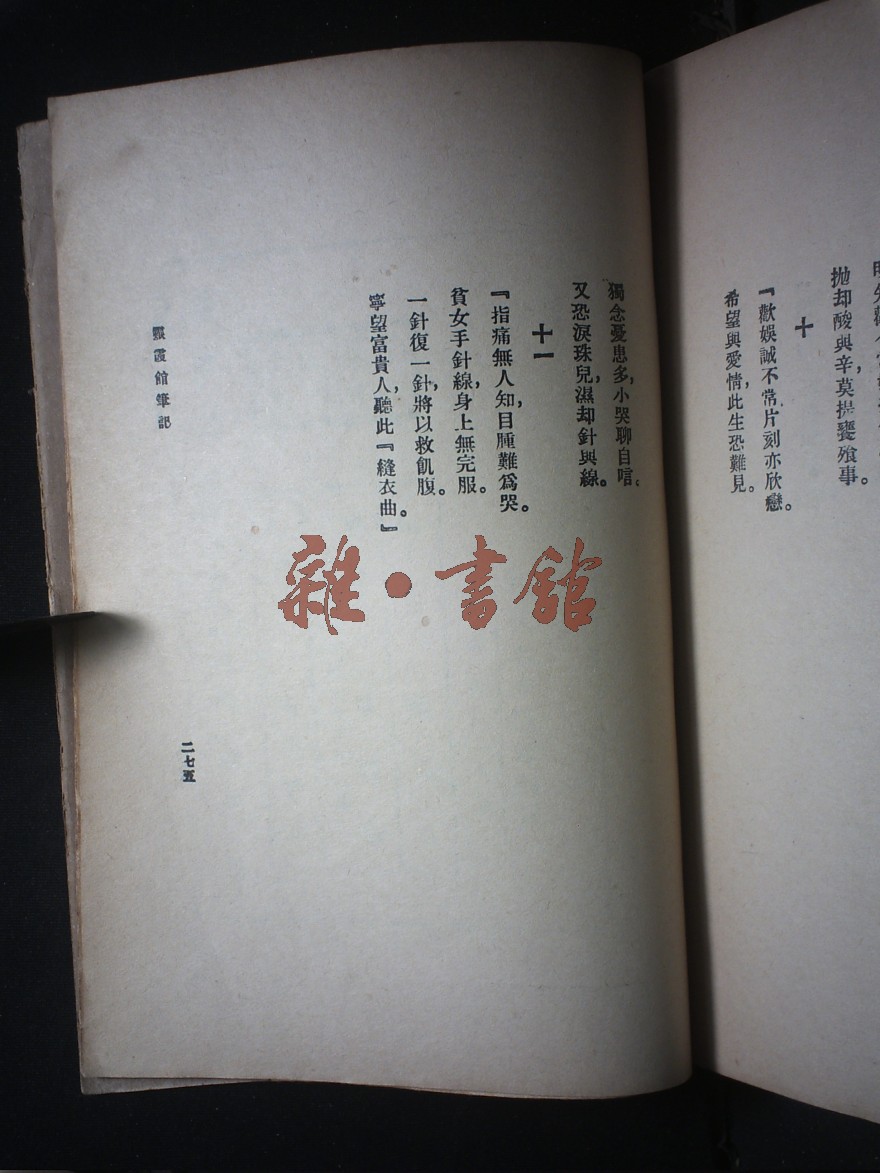 拋却酸與辛,莫提饔飧事。
十
『歡娛誠不常,片刻亦欣戀。
希望與愛情,此生恐難見。
獨念憂患多,小哭聊自唁。
又恐淚珠兒,濕却針與線。
十一
『指痛無人知,目腫難爲哭。
貧女手針線,身上無完服。
一針復一針,將以救飢腹。
寧望富貴人,聽此『縫衣曲。』
霞館筆記
二七五
雜·書館